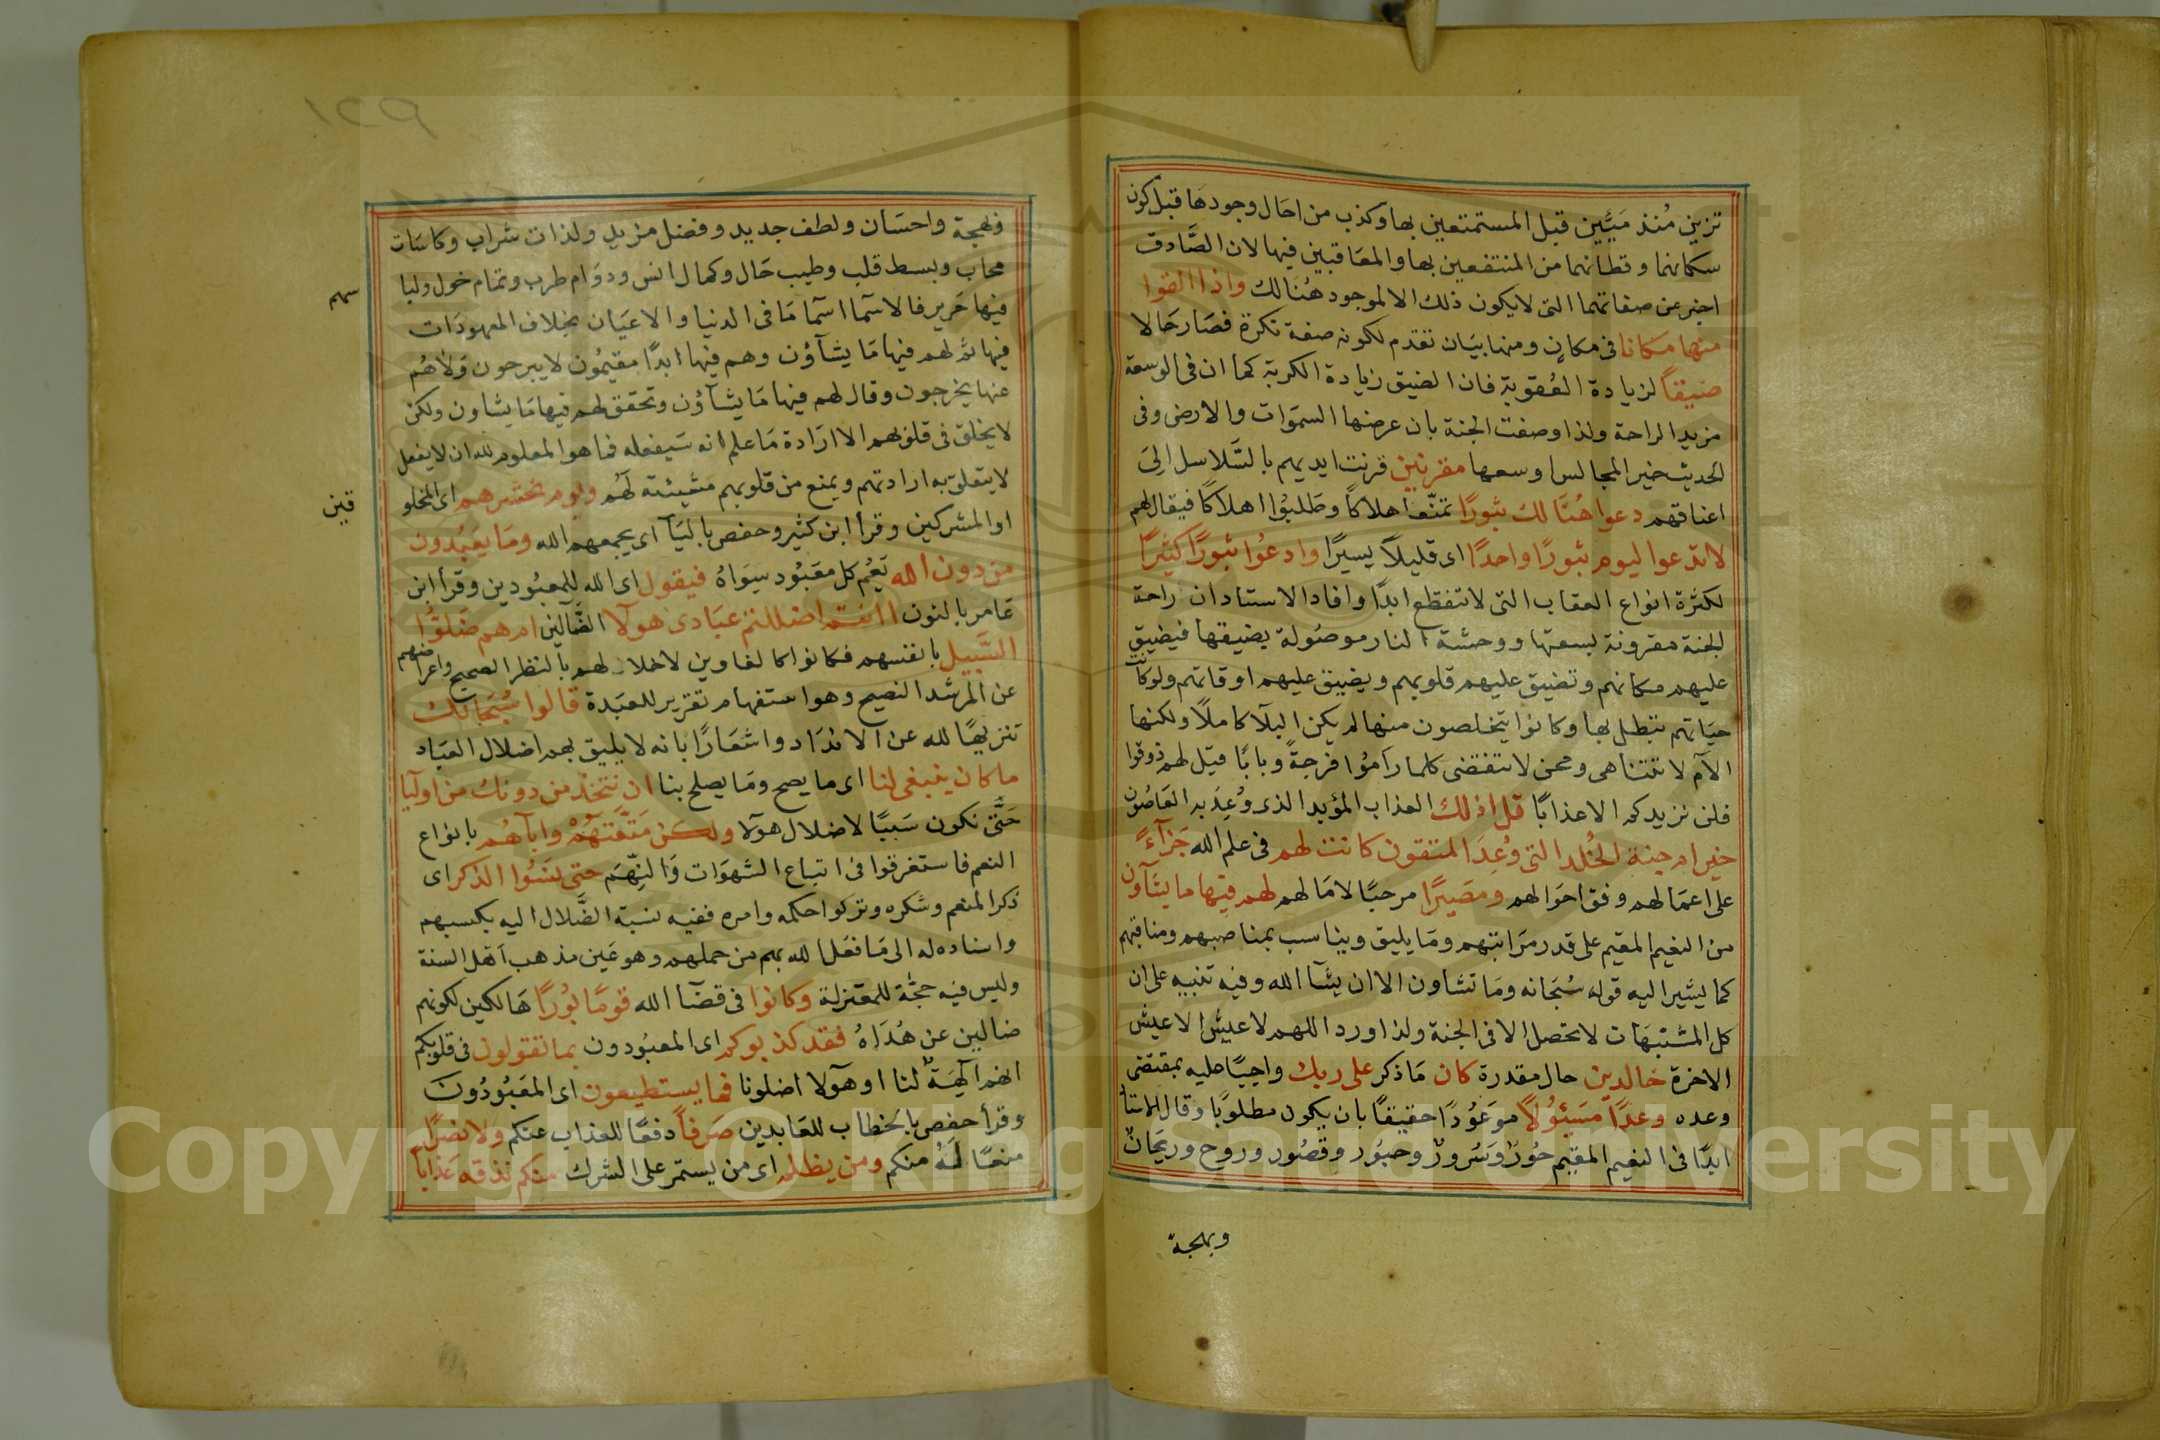 تزين مُنذ مَيّتين قبل المستمتعين بها وكذب من احَال وجودهَا قبل كون
سكانهما وقطانهما من المنتفعين بها والمعَاقبين فيها لان الصَّادق
اخبر عن صفاتهما التى لا يكون ذلك الا لموجود هُنَالك واذا القوا
منها مكانا فى مكان ومنها بيَان تقدم لكونه صفة نكرة فصَار حَالا
ضيقًا لزيادة العُقوبة فان الضيق زيادة الكربة كما ان فى الوسعة
مزيد الراحة ولذا وصفت الجنة بان عرضها السموَات والارض وفى
الحديث خير المجالس اوسعها مقرنين قرنت ايديهم بالسَّلاسل الى
اعناقهم دعوا هُنَالك ثبورًا تمنّوا هلاكًا وطَلبُوا اهلاكًا فيقال لهم
لا تدعوا ليوم ثبورًا واحدًا اى قليلاً يسيرًا وادعُوا ثبورًا كثيرًا
لكثرة انواع العقاب التى لا تنقطع ابدًا وافاد الاستاد ان راحة
الجنة مقرونة بسعتها ووحشة النار موصُولة بضيقها فيضيق
عليهم مكانهم وتضيق عليهم قلوبهم ويضيق عليهم اوقاتهم ولو كانت
حيَاتهم تبطل بها وكانوا يتخلصون منها لم يكن البلآ كاملاً ولكنها
الآم لا تتناهى ومحن لا تنقضى كلما رَامُوا فرجةً وبابًا قيل لهم ذوقوا
فلن نزيدكم الا عذابًا قل اذلك العذاب المؤبد الذى وُعِدَ به العَاصُون
خير ام جنة الخُلد التى وُعِدَ المتقون كانت لهم فى علم الله جَزآءً
على اعمَالهم وفق احوَالهم ومصَيرًا مرحبًا لامَالهم لهم فيها ما يشَآون
من النعيم المقيم على قدر مرَاتبهم ومَا يليق ويناسب بمناصبهم ومناقبهم
كما يشير اليه قوله سُبحَانه ومَا تشاون الا ان يشآ الله وفيه تنبيه على ان
كل المشتبهَات لا تحصل الا فى الجنة ولذا ورد اللهم لا عيش الا عيش
الاخرة خالدين حال مقدرة كان مَا ذكر على ربك واجبًا عليه بمقتضى
وعده وعدًا مسَئوُلاً موعَوُدًا حقيقًا بان يكون مطلوبًا وقال الاستاد
ابدًا فى النعيم المقيم حُورٌ وَسَرورٌ وحبُور وقصُور وروح وريحَان
وبهجة
وبهجة واحسَان ولطف جديد وفضل مزيد ولذات شراب وكاسَات
محاب وبسط قلب وطيب حَال وكمال انس ودوَام طرب وتمام خول ولبا
سهم
فيها حَرير فالاسمآ اسمآ مَا فى الدنيا والاعيَان بخلاف المعهودَات
فيها ثم لهم فيها مَا يشآؤن وهم فيها ابدًا مقيمُون لا يبرحون وَلاهُم
عنها يخرجون وقال لهم فيها مَا يشآؤن وتحقق لهم فيها مَا يشاون ولكن
لا يخلق فى قلوبهم الا ارَادة مَا علم انه سَيفعله فما هو المعلوم لله ان لا يفعل
لا يتعلق به ارادتهم ويمنع من قلوبهم مشيئته لهُم ويوم نحشرهم اى المخلو
قين
او المشركين وقرأ ابن كثير وحفص باليَآ اى يجمعهم الله ومَا يعبُدون
من دون الله تَعُم كل معَبُود سِوَاهُ فيقول اى الله للمعبُودين وقرأ ابن
عَامر بالنون اانتم اضللتم عبَادى هولآ الضَّآلين ام هم ضَلوُّا
السَّبيل بانفسهم فكانوا كالغاوين لاخلالهم بالنظر الصحيح واعراضهم
عن المرشد النصيح وهو استفهام تقرير للعبَدة قالوا سُبحَانك
تنزيهًا لله عن الاندَاد واشعَارًا بانه لا يليق بهم اضلال العبَاد
ما كان ينبغى لنا اى ما يصح ومَا يصلح بنا ان نتخذ من دونك من اوليآ
حَتَّى نكون سَببًا لاضلال هولآ ولكن مَتَّعتَهُمْ وابآهُم بانواع
النعم فاستغرقوا فى اتباع الشهوَات وَالنّهَم حتى نسُوا الذكر اى
ذكر المنعم وشكره وتركوا حكمه وامره ففيه نسبة الضَّلال اليه بكسبهم
واسناده له الى مَا فعَل الله بهم من حملهم وهو عَين مذهب اَهل السنة
وليس فيه حجَّة للمعَتزلة وكانوا فى قضآ الله قومًا بُورًا هَالكين لكونهم
ضالين عن هُدَاهُ فقد كذبوكم اى المعبُودون بما تقولون فى قلوبكم
انهم آلهَةٌ لنا او هوآلا اضلونا فما يستطيعون اى المعَبُودُونَ
وقرأ حفص بالخطاب للعَابدين صَرفًا دفعًا للعذاب عنكم ولا نصَرًا
منعًا لهُ منكم ومن يظلم اى من يستمر على الشرك منكم نذقه عَذابا